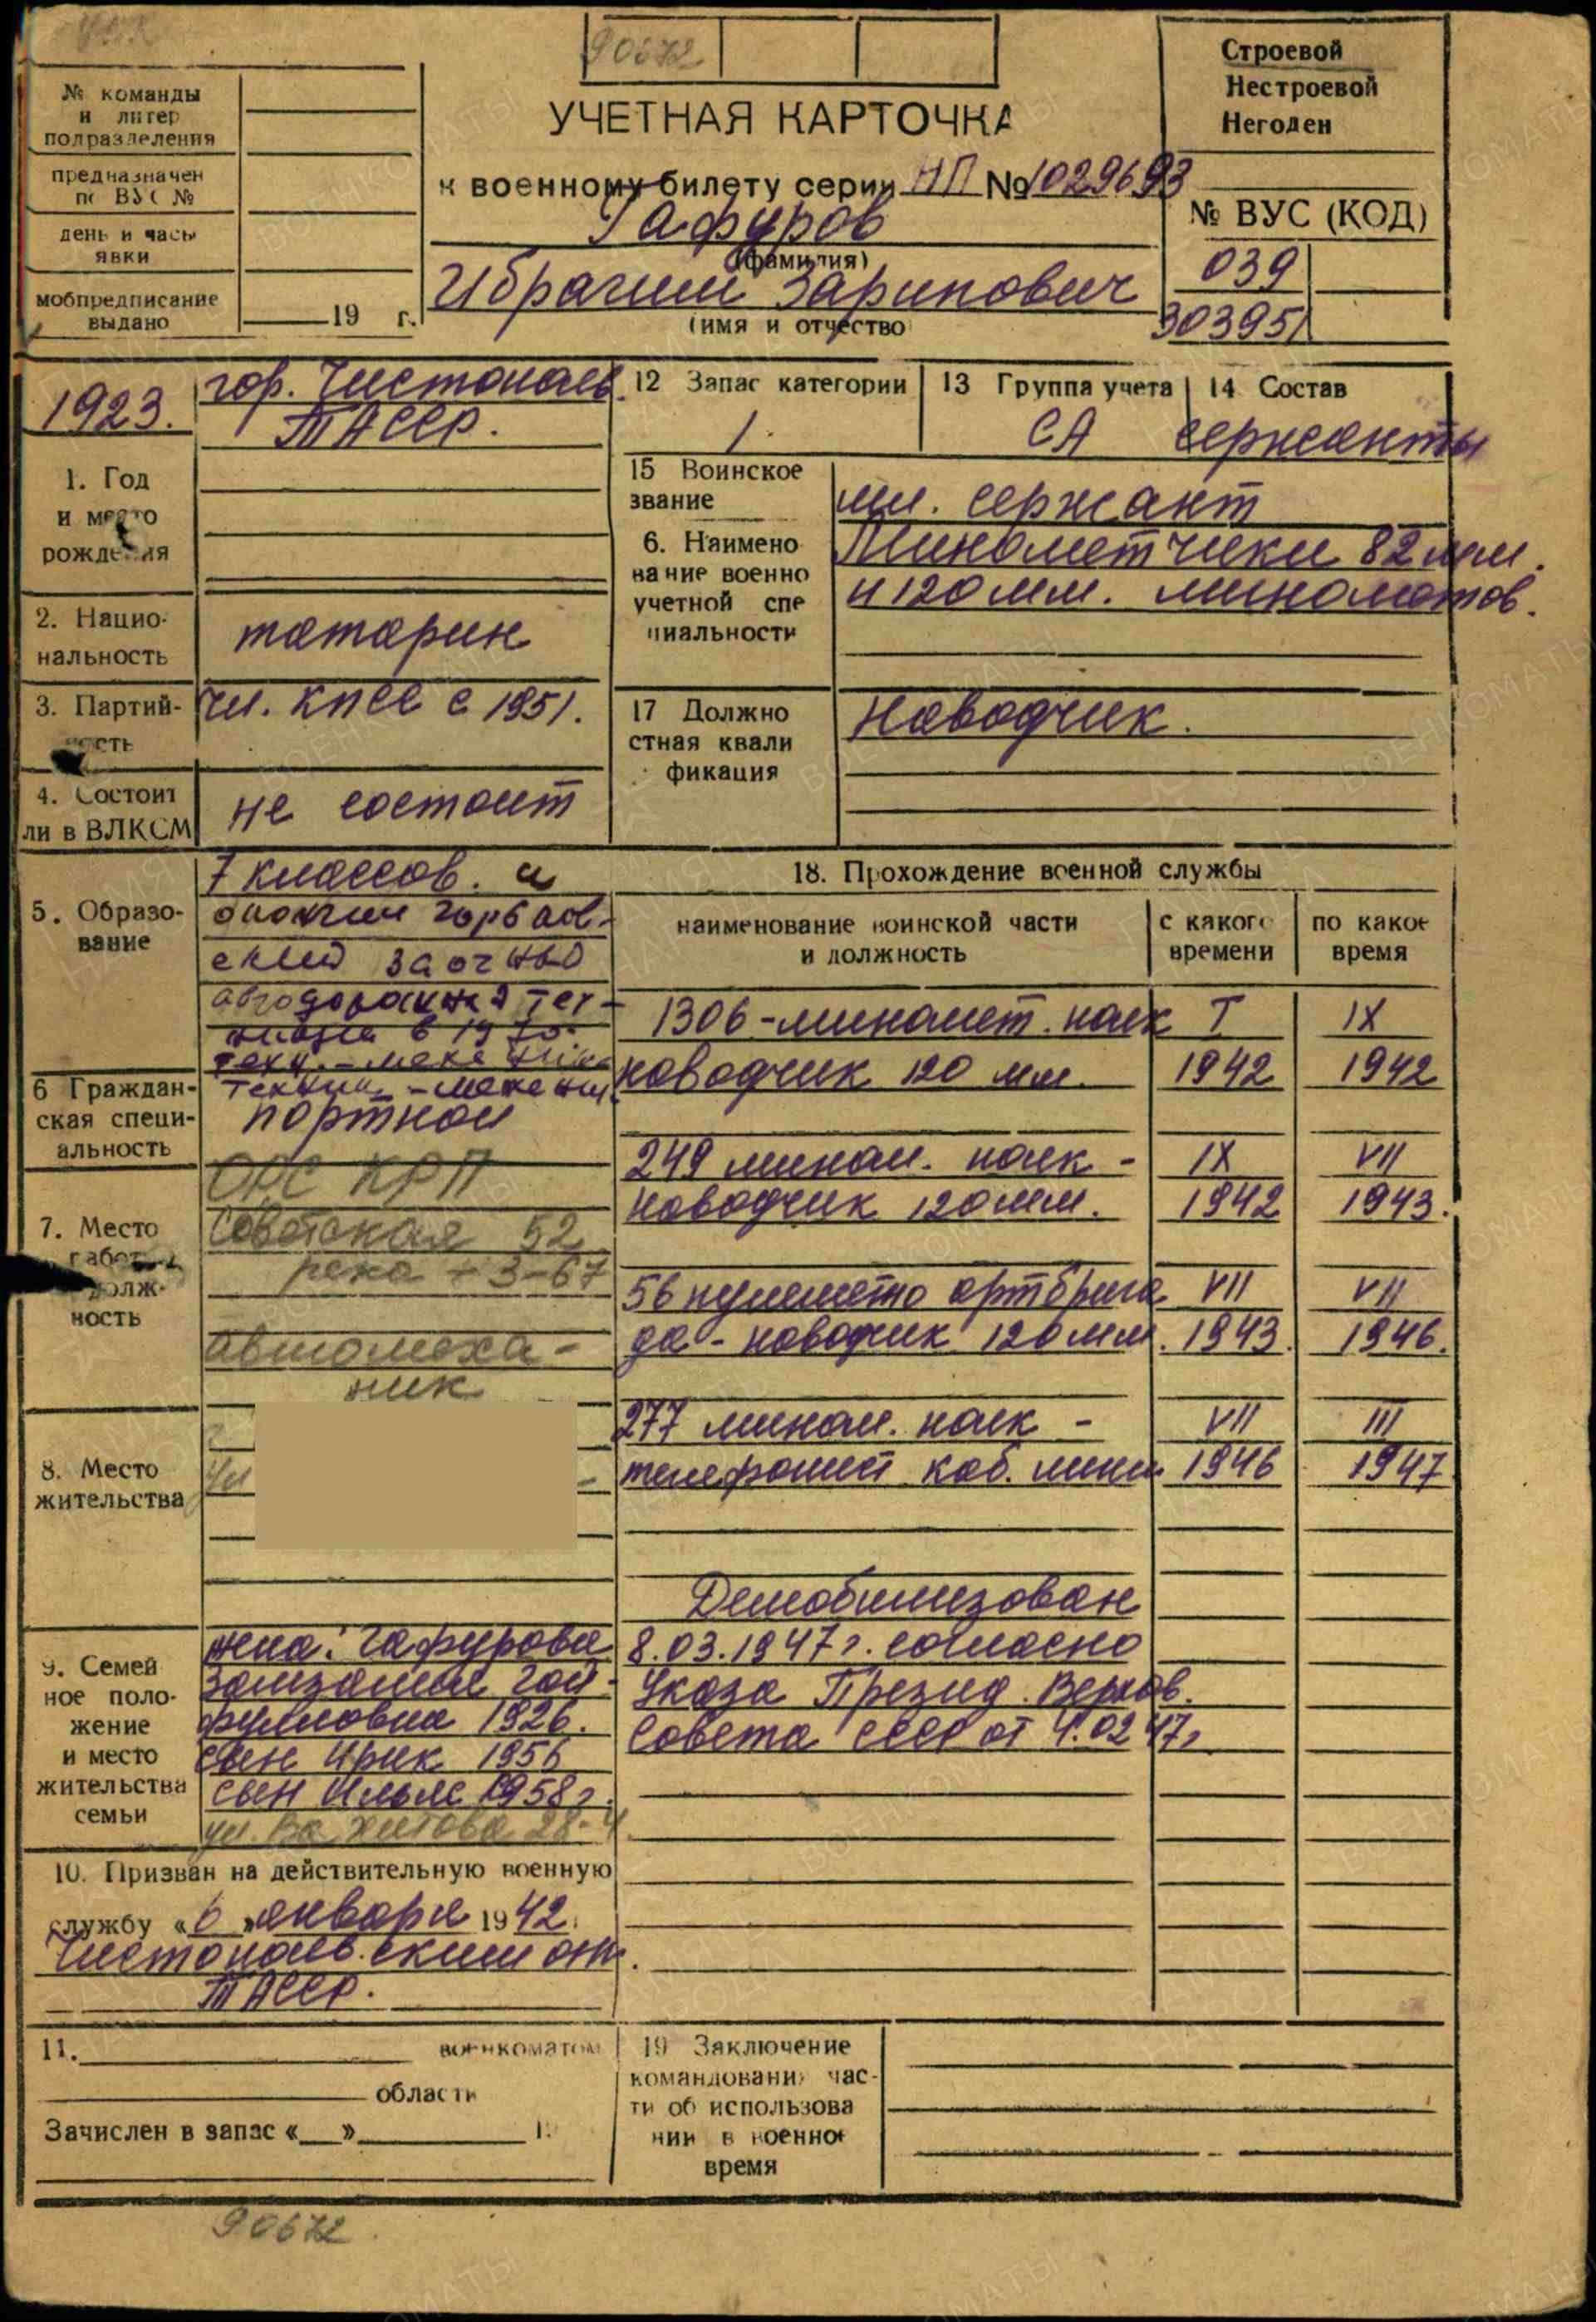 90672
Строевой
Нестроевой
Негоден
№ команды
и литер
подразделения
предназначен
по ВУС №
день и часы
явки
мобпредписание
выдано
19 г.
УЧЕТНАЯ КАРТОЧКА
к военному билету серии НП № 1029693
Гафуров
(фамилия)
Ибрагим Зарипович
(имя и отчество
№ ВУС (КОД)
039
303951
1923.
гор. Чистополь
ТАССР.
1. Год
и место
рождения
12 Запас категории
1.
13 Группа учета
СА
14 Состав
сержанты
15 Воинское
звание
мл. сержант
6. Наимено
вание военно
учетной спе
циальности
Минометчики 82 мм.
и 120 мм. минометов.
2. Нацио-
нальность
татарин
3. Партий-
ность
чл. КПСС с 1951.
17 Должно
стная квали
фикация
Наводчик.
4. Состоит
ли в ВЛКСМ
не состоит
5. Образо-
вание
7 классов. и
окончил Горбатов-
ский заочно
автодорожн
в 1970
техн. - механик
6 Граждан-
ская специ-
альность
Техник - механик
портной
7. Место
работы
долж-
ность
ОРС КРП
Советская 52
3-67
автомеха-
ник
8. Место
жительства
9. Семей
ное поло-
жение
и место
жительства
семьи
жена: Гафурова
1926.
сын Ирик 1956
сын Ильяс 1958 г.
ул. Вахитова 28-4
10. Призван на действительную военную
службу «6» января 1942.
Чистопольским
ТАССР.
11. военкоматом
области
Зачислен в запас « » г.
18. Прохождение военной службы
наименование воинской части
и должность
с какого
времени
по какое
время
1306 - миномет. полк I IX
наводчик 120 мм. 1942 1942
249 мином. полк - IX VII
наводчик 120 мм. 1942 1943.
56 пулеметно артбрига VII VII
да - наводчик 120 мм. 1943. 1946.
277 мином. полк - VII III
телефонист каб. линии 1946 1947
Демобилизован
8.03.1947 г. согласно
Указа Презид. Верхов.
Совета СССР от 4.02 47 г
19 Заключение
командования час-
ти об использова
нии в военное
время
90672